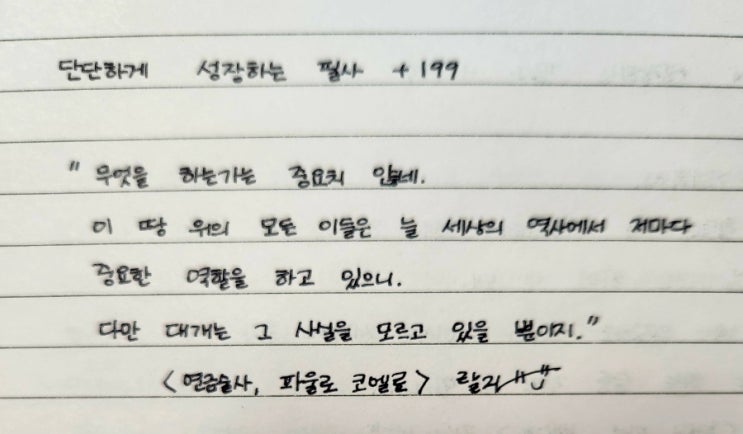 단단하게 성장하는 필사 +199
"무엇을 하는가는 중요치 않네.
이 땅 위의 모든 이들은 늘 세상의 역사에서 저마다
중요한 역할을 하고 있으니.
다만 대개는 그 사실을 모르고 있을 뿐이지."
<연금술사, 파울로 코엘료>